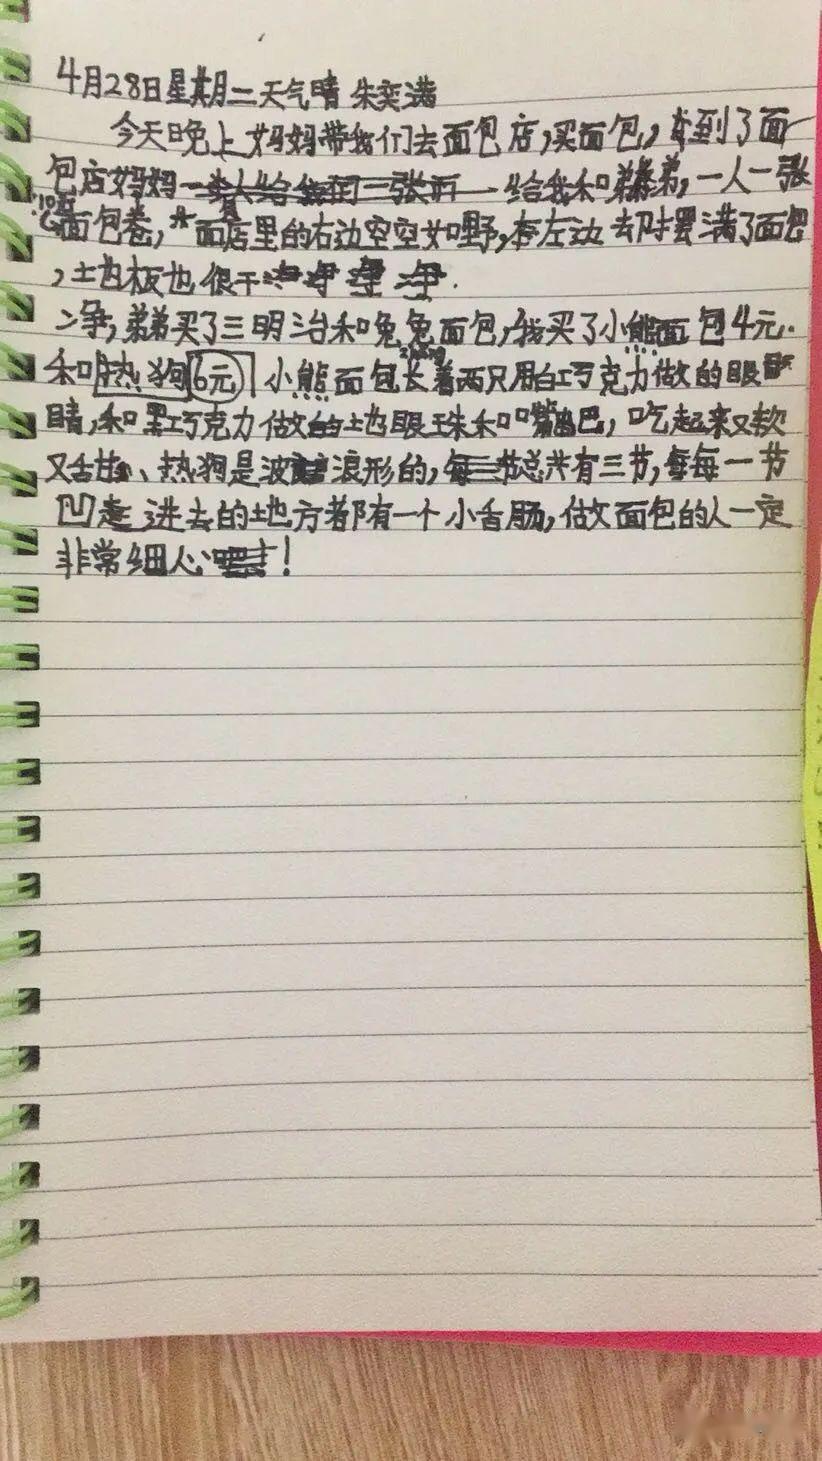 4月28日星期二天气晴 朱奕满
今天晚上妈妈带我们去面包店,买面包,到了面
包店妈妈一人给我们二张面给我和弟弟,一人一张
10元
面包卷,面店里的右边空空如野,在左边却摆满了面包
,地板也很干净
净,弟弟买了三明治和兔兔面包,我买了小熊面包4元.
和热狗6元 小熊面包长着两只用白巧克力做的眼
睛,和黑巧克力做的地眼珠和嘴巴,吃起来又软
又甜、热狗是波浪形的,总共有三节,每一节
凹进去的地方都有一个小香肠,做面包的人一定
非常细心!